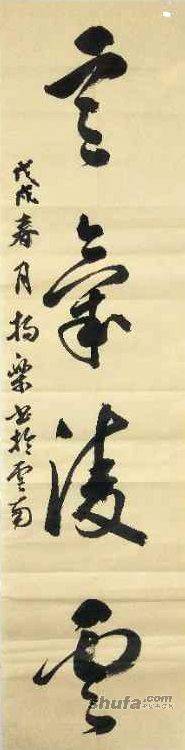 意氣凌雲
戊戌春月楊樂書於雲南
shufa.com